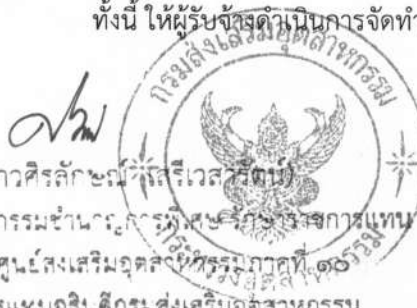 ทั้งนี้ ให้ผู้รับจ้างดำเนินการจัดทำ
กรมส่งเสริมอุตสาหกรรม
าวศิรลักษณ์ เสรีเวสารัตน์)
กรรมชำนาญการพิเศษ รักษาราชการแทน
ศูนย์ส่งเสริมอุตสาหกรรมภาคที่ ๑๐
กรมส่งเสริมอุตสาหกรรม